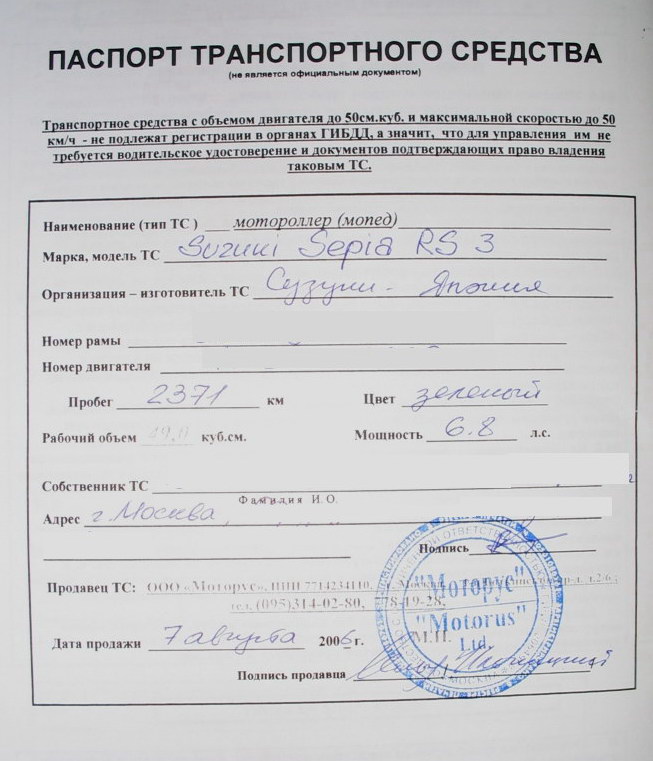 ПАСПОРТ ТРАНСПОРТНОГО СРЕДСТВА
(не является официальным документом)
Транспортное средства с объемом двигателя до 50см.куб. и максимальной скоростью до 50
км/ч - не подлежат регистрации в органах ГИБДД, а значит, что для управления им не
требуется водительское удостоверение и документов подтверждающих право владения
таковым ТС.
Наименование (тип ТС ) мотороллер (мопед)
Марка, модель ТС Suzuki Sepia RS 3
Организация – изготовитель ТС Сузуки - Япония
Номер рамы
Номер двигателя
Пробег 2371 км Цвет зеленый
Рабочий объем 49,0 куб.см. Мощность 6.8 л.с.
Собственник ТС
Фамилия И.О.
Адрес г. Москва,
Подпись
Продавец ТС: ООО «Моторус», ИНН 7714234110,
тел. (095)314-02-80,
"Моторус"
"Motorus"
Ltd.
М.П.
Дата продажи 7 августа 2006 г.
Подпись продавца